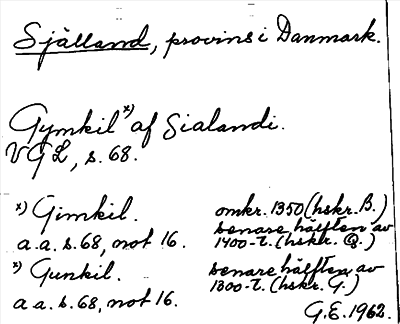 Själland, provins i Danmark.
Gymkil x) af Sialandi.
VGL, s. 68.
x) Gimkil. omkr. 1350 (hskr. B.)
a.a. s. 68, not 16. senare hälften av 1400-t. (hskr. Q.)
x) Gunkil. senare hälften av
a.a. s. 68, not 16. 1300-t. (hskr. G.)
G.E. 1962.